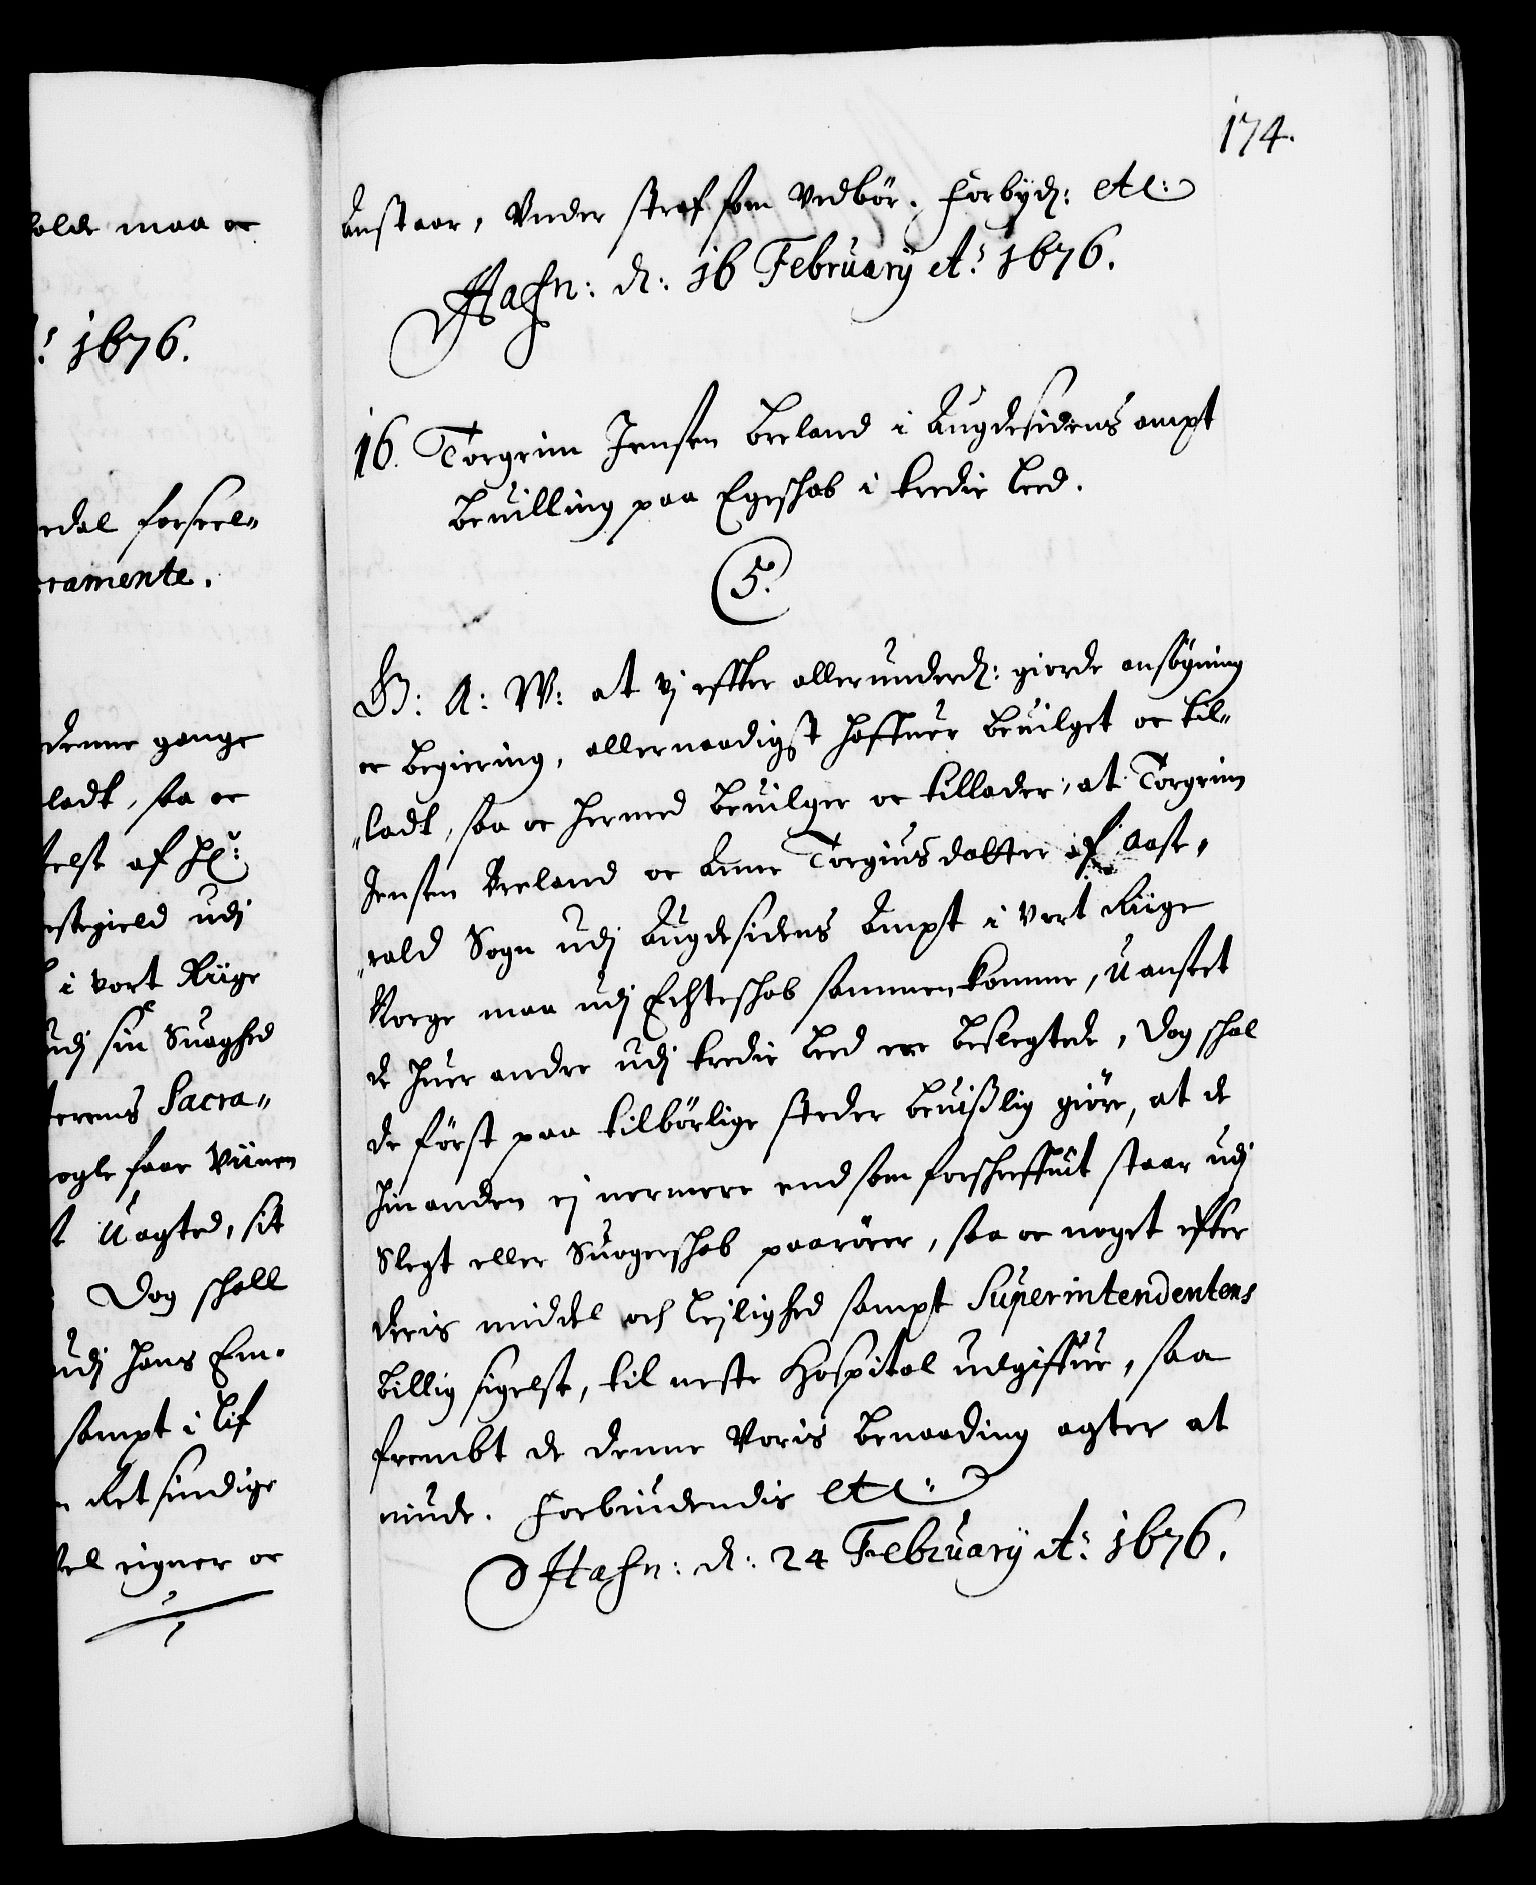 174.
anstaar, Under straf som vedbör. Forbyd: etc:
Hafn: d: 16 February Aº 1676.
16. Torgrim Jensen Breland i Augdesidens ampt
beuilling paa Egteskab i tredie leed.
5.
G: A: W: at Vj effter allerunderd: giorde ansögning
oc begiering, allernaadigst haffuer beuilget oc til„
„ladt, saa oc hermed beuilger oc tillader, at Torgrim
Jensen Breland oc Anne Torgiusdatter af Aase„
„rald Sogn udj Augdesidens Ampt i vort Riige
Norge maa udj Echteskab sammenkomme, Uanseet
de huer andre udj tredie leed ere beslegtede, Dog skal
de först paa tilbörlige steder beuißlig giöre, at de
hin anden ej nermere end som forschreffuit staar udj
Slegt eller Suogerskab paarörer, saa oc noget efter
deris middel och lejlighed sampt Superintendentens
billig sigelse, til neste Hospital udgiffue, saa
fremt de denne Voris benaading agter at
niude. Forbiudendis etc:
Hafn: d: 24 February Aº 1676.
holde maa oc
Aº 1676.
edal forseel„
cramente.
denne gange
ladt, saa oc
else af Hr:
estegield udj
i vort Riige
udj sin Suaghed
terens Sacra„
ogle faar Viinen
Uagted, sit
Dog skall
udj hans Em„
sampt i lif
Retsindige
vel eigner oc